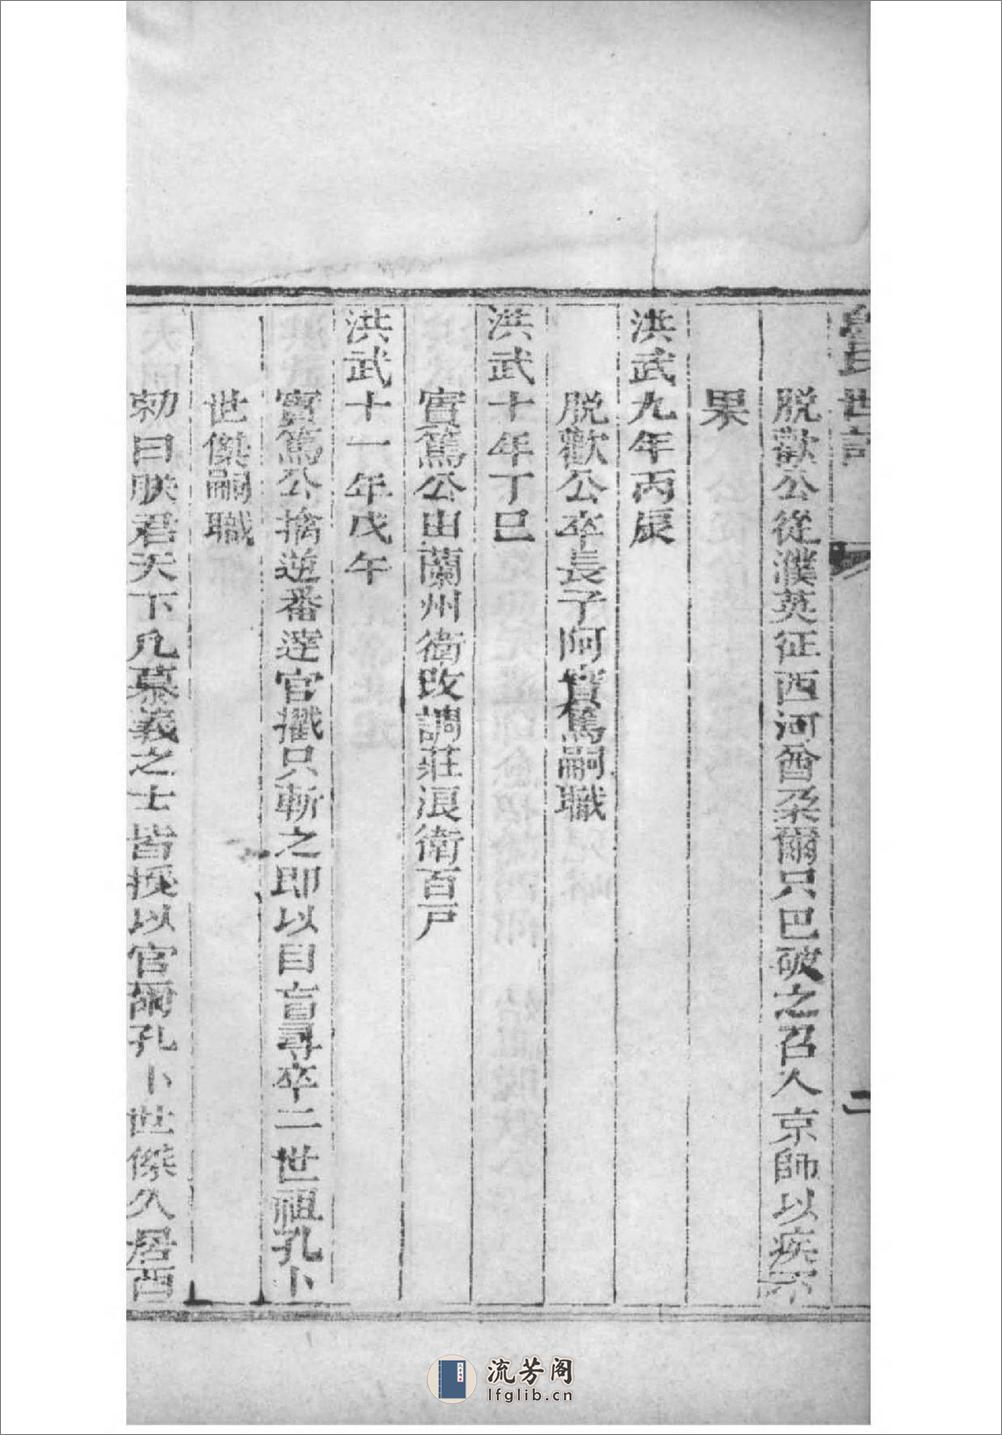 魯氏世譜
二
脫歡公從濮英征西河酋朶爾只巴破之召入京師以疾不
果
洪武九年丙辰
脫歡公卒長子阿實篤嗣職
洪武十年丁巳
實篤公由蘭州衛改調莊浪衛百戸
洪武十一年戊午
實篤公擒逆番達官攢只斬之即以目盲尋卒二世祖孔卜
世傑嗣職
勅曰朕君天下凡慕義之士皆授以官爾孔卜世傑久居西
流芳阁
lfglib.cn